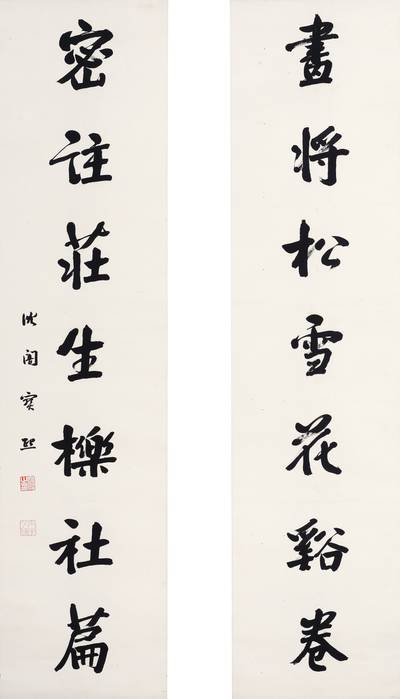 畫將松雪花谿卷
密註莊生櫟社篇
沈闇寶熙